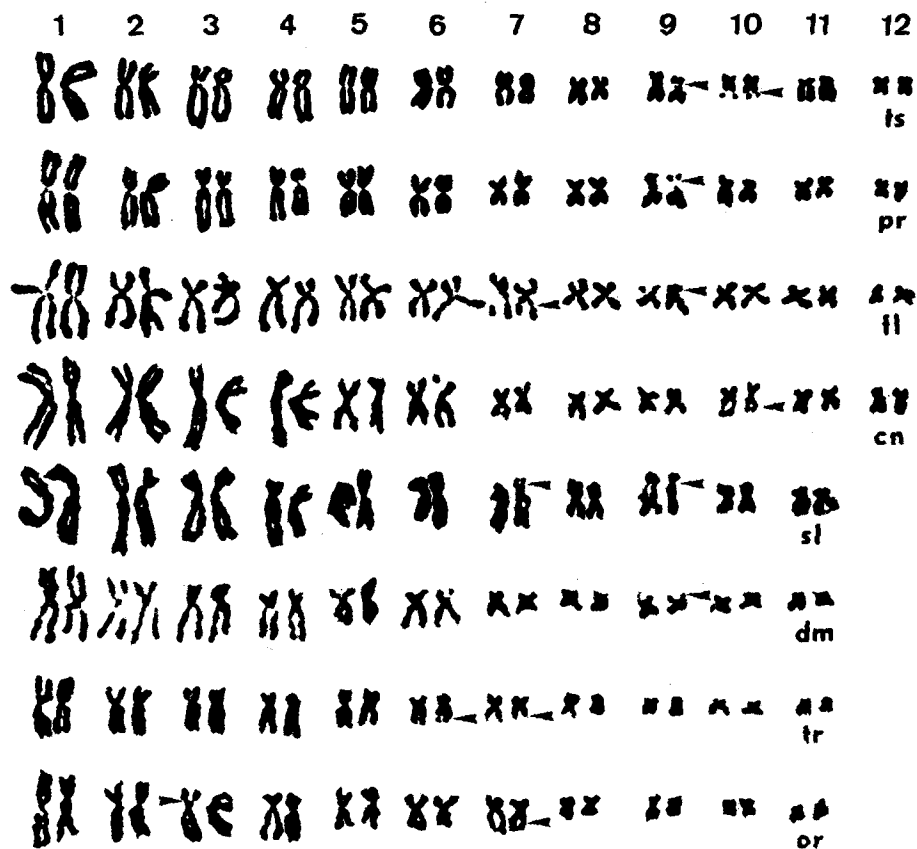 1 2 3 4 5 6 7 8 9 10 11 12
ts
pr
fl
cn
sl
dm
tr
or